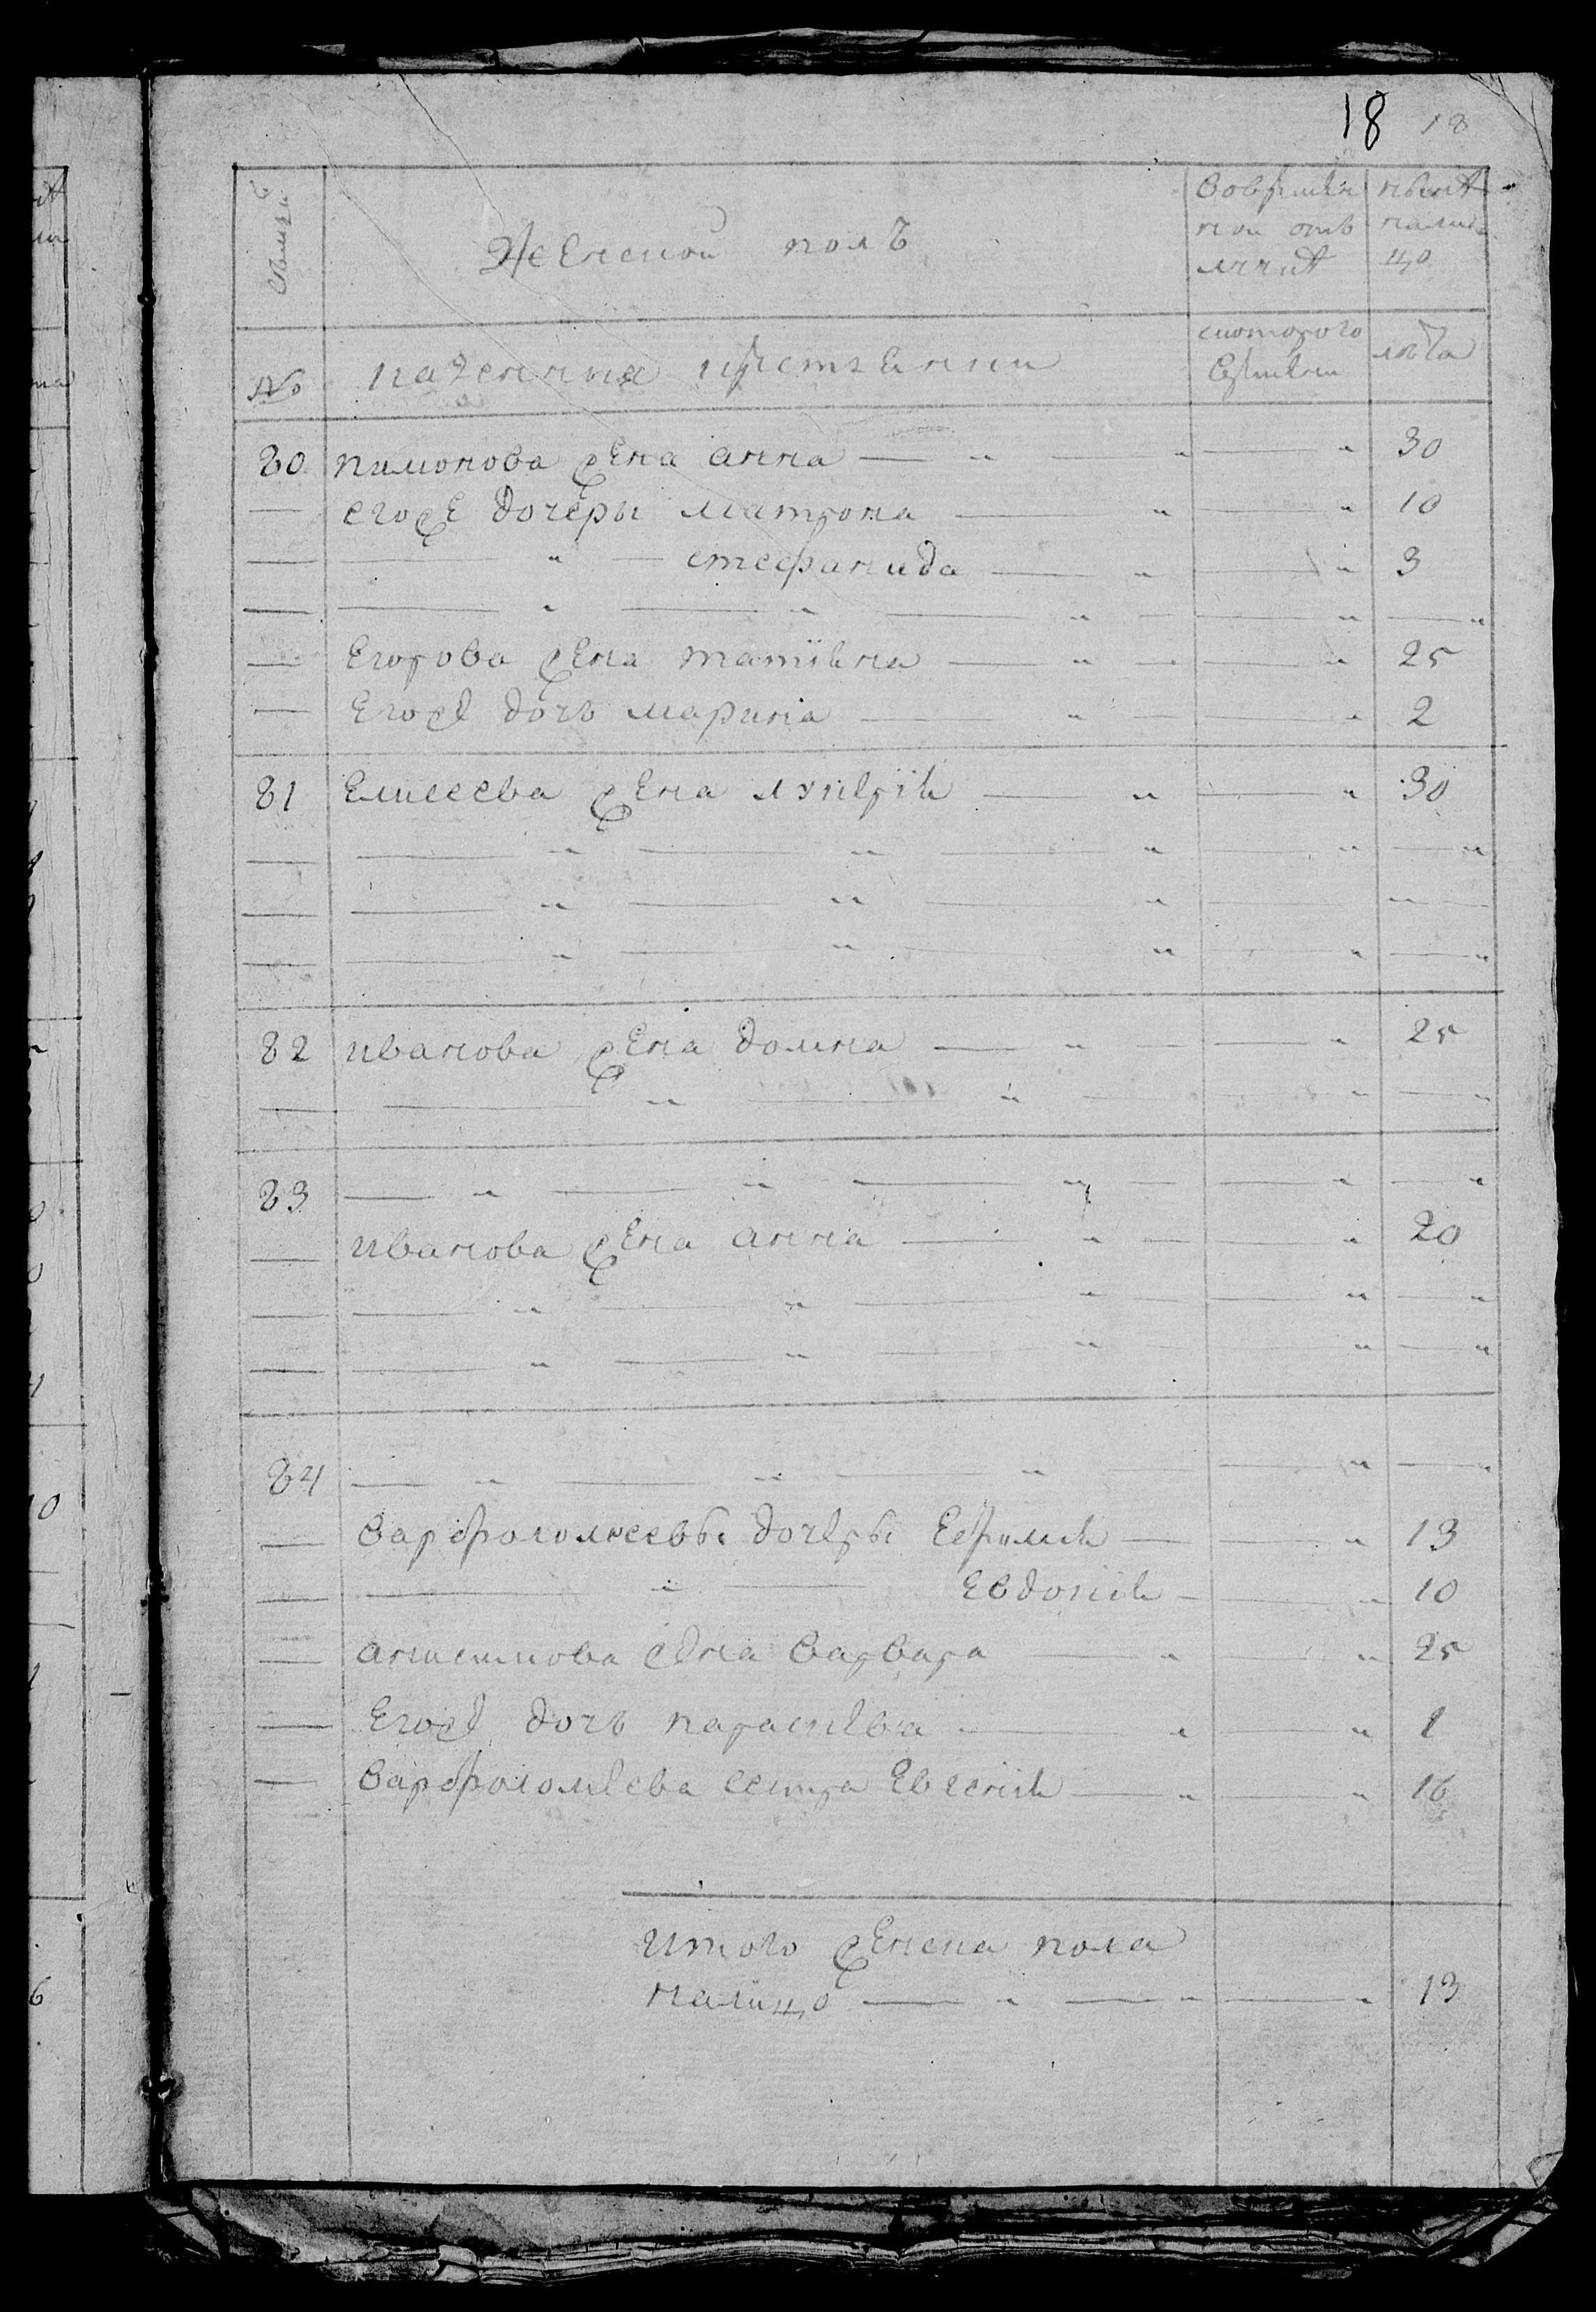 18 18
Семьи
Женской полъ
Во временной отлучкѣ
Нынѣ на лицо
№
казенныя крестьянки
с котораго времени
лѣта
80 пимонова жена анна — „ — „ — „ 30
— егож дочеры матрона — „ — „ 10
— — „ — стефанида — „ — „ 3
— — „ — „ — „ — „ — „
— Егорова жена татиѣна — „ — „ 25
— Егож дочь марина — „ — „ 2
81 Елисеева жена лукерія — „ — „ 30
— — „ — „ — „ — „ — „
— — „ — „ — „ — „ —
— — „ — „ — „ — „ — „
82 иванова жена домна — „ — „ 25
— — „ — „ — „ — „
83 — „ — „ — „ — „ — „
— иванова жена анна — „ — „ 20
— — „ — „ — „ — „ — „
— — „ — „ — „ — „ — „
84 — „ — „ — „ — „ — „
— Варфоломеевы дочеры Ефимія — „ 13
— — „ — Евдокія — „ 10
— жена Варвара — „ — „ 25
— Егож дочь параскева — „ — „ 1
— Варфоломеева сестра Евгенія — „ — „ 16
Итого женска пола
налицо — „ — „ — „ 13